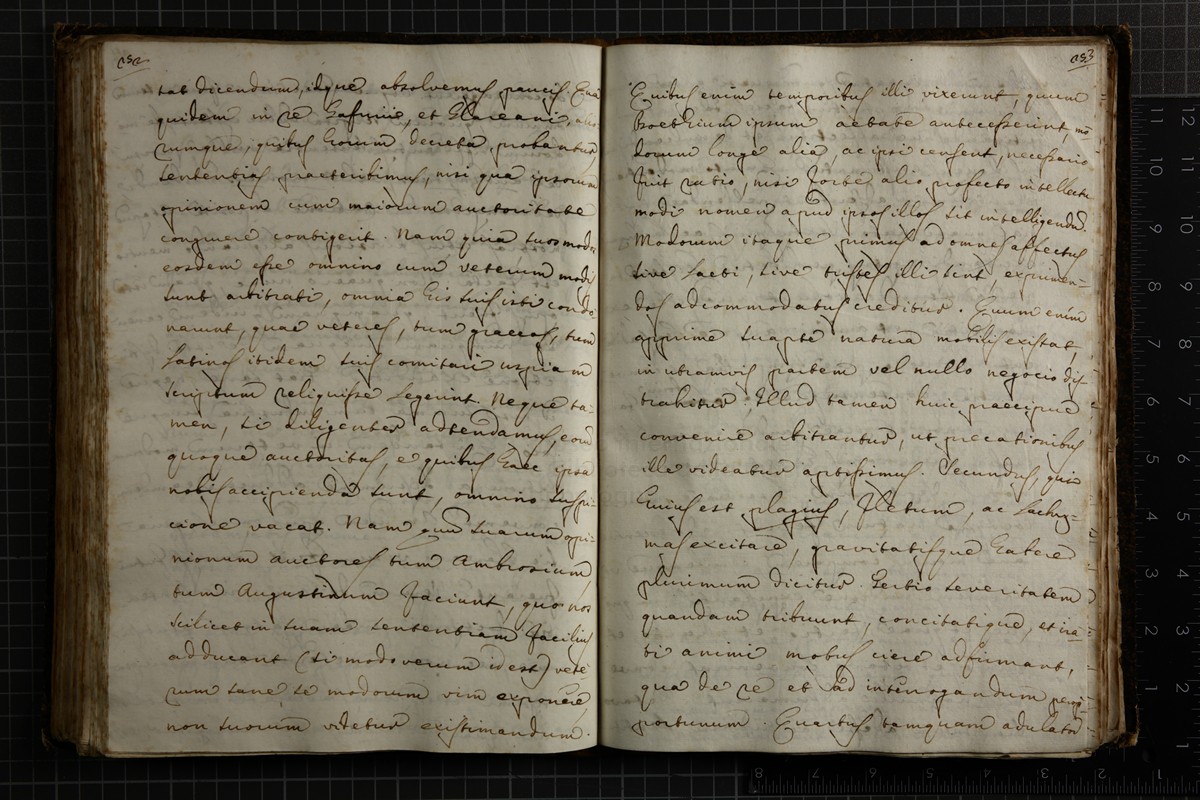 252
tat dicendum, idque absolvemus paucis. Qua
quidem in re Gafurii, et Glareani, alio
rumque, quibus horum decreta probantur
sententias praeteribimus, nisi qua ipsorum
opinionem cum maiorum auctoritate
congruere contigerit. Nam quia suos modos
eosdem esse omnino cum veterum modis
sunt arbitrati, omnia his suis isti condo
narunt, quae veteres, tum graecos, tum
Latinos itidem suis comitari uspiam
scriptum reliquisse legerint. Neque ta-
men, si diligenter attendamus, eorum
quoque auctoritas, e quibus haec ipsa
nobis accipienda sunt, omnino suspi-
cione vacat. Nam quum suarum opi-
nionum auctores tum Ambrosium,
tum Augustinum faciunt, quo nos
scilicet in suam sententiam facilius
adducant (si modo verum id est) vete
rum sane se modorum vim exponere,
non suorum videtur existimandum.
253
Quibus enim temporibus illi vixerunt, quum
Boethium ipsum aetate antecesserint, mo
dorum longe alia, ac ipsi censent, necessario
fuit ratio, nisi forte alio profecto intellectu
modi nomen apud ipsos illos sit intelligendum.
Modorum itaque primus ad omnes affectus
sive laeti, sive tristes illi sint, exprimen-
dos adcommodatus creditur. Quum enim
apprime suapte natura mobilis existat,
in utramvis partem vel nullo negocio dis
trahitur. Illud tamen huic praecipue
convenire arbitrantur, ut precationibus
ille videatur aptissimus. Secundus, qui
huius est plagius, fletum, ac lachry-
mas excitare, gravitatisque habere
plurimum dicitur. Tertio severitatem
quandam tribuunt, concitatique, et ira
ti animi motus ciere adfirmant,
qua de re et ad interrogandum
portunum. Quartus tamquam adulator